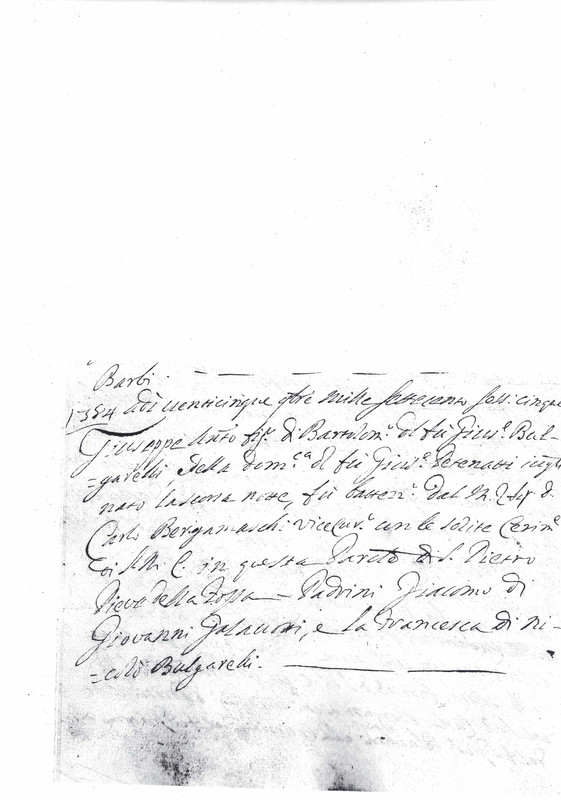 Barbi.
1354 Adi venticinque 9bre Mille Settecento Sess: cinque
Giuseppe Anto fig.o di Bartolom.o del fu Gius.e Bul-
=garelli, e della Dom.ca del fu Gius.e
nato la scorsa notte, fù battez.o dal M.
Carlo Bergamaschi Vicecur.o con le solite Cerim.e
di S. M. C. in questa Paroc. di S. Pietro
Pieve della Fossa — Padrini Giacomo di
Giovanni Galavotti, e la Francesca di Ni-
=colò Bulgarelli.